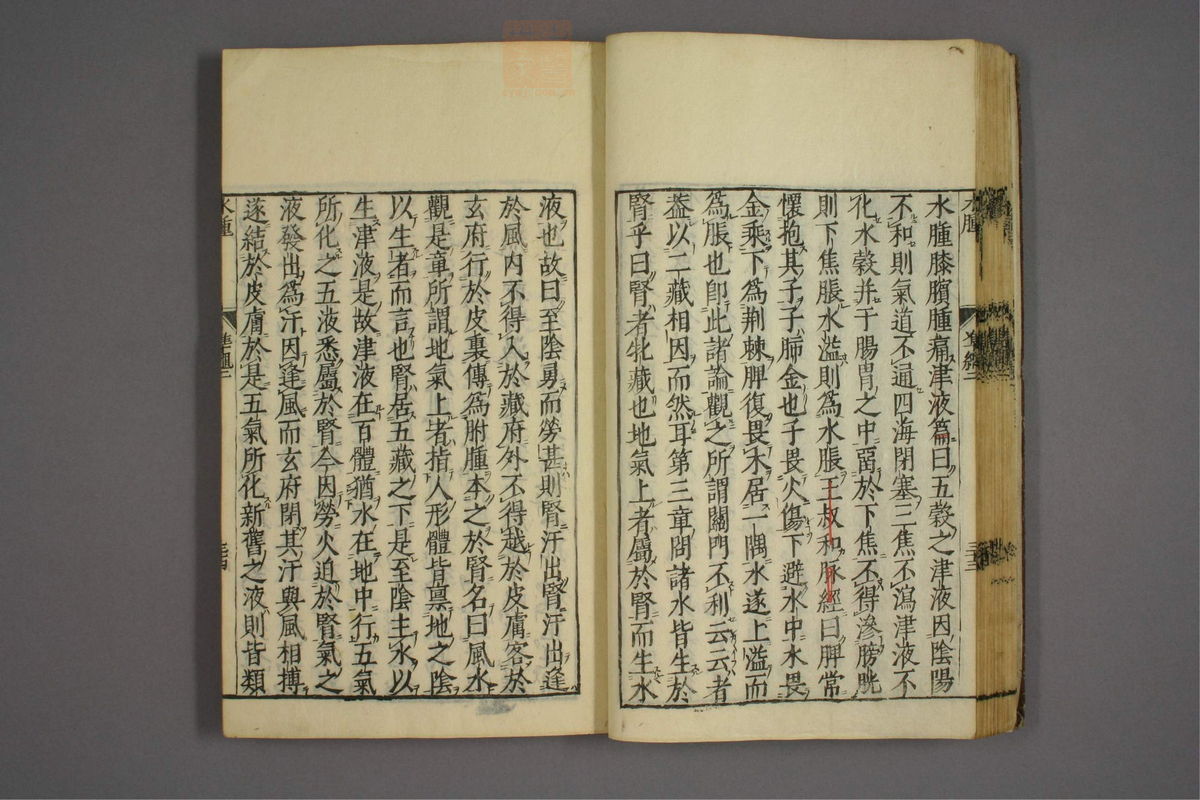 水腫膝臏腫痛津液篇曰五穀之津液因陰陽
不和則氣道不通四海閉塞三焦不瀉津液不
化水穀并于腸胃之中畱於下焦不得滲膀胱
則下焦脹水濫則爲水脹王叔和脉經曰脾常
懷抱其子子肺金也子畏火傷下避水中水畏
金乘下爲荆棘脾復畏木居一隅水遂上溢而
爲脹也卽此諸論觀之所謂關門不利云云者
葢以二藏相因而然耳第三章問諸水皆生於
腎乎曰腎者牝藏也地氣上者屬於腎而生水
液也故曰至陰勇而勞甚則腎汗出腎汗出逢
於風内不得入於藏府外不得越於皮膚客於
玄府行於皮裏傳爲胕腫本之於腎名曰風水
觀是章所謂地氣上者指人形體皆禀地之陰
以生者而言也腎居五藏之下是至陰主水以
生津液是故津液在百體猶水在地中行五氣
所化之五液悉屬於腎今因勞火迫於腎氣之
液發出爲汗因逢風而玄府閉其汗與風相搏
遂結於皮膚於是五氣所化新舊之液則皆類
水腫